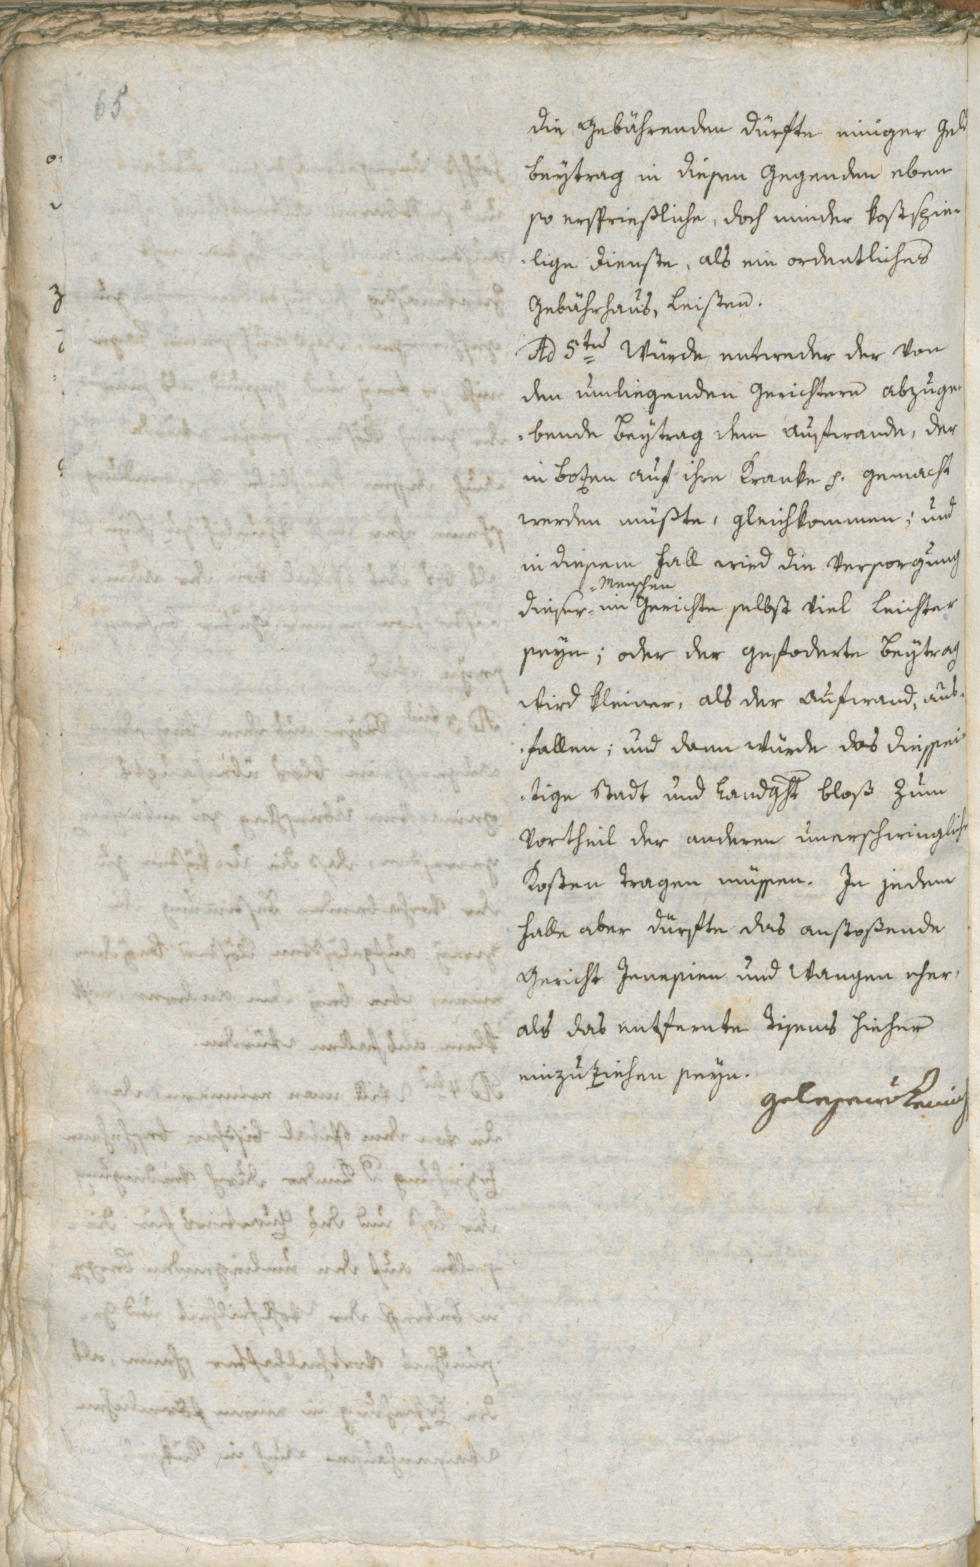 65
die Gebährenden dürfte einiger Geld
beytrag in diesen Gegenden eben
so ersprießliche, doch minder kostspie-
-lige Dienste, als ein ordentliches
Gebährhaus, leisten.
Ad 5tus Würde entweder der von
den umliegenden Gerichtern abzuge-
-bende Beytrag dem Aufwande, der
in Botzen auf ihre Kranke p. gemacht
werden müßte, gleichkommen; und
in diesem Fall wird die Versorgung
-Menschen
dieser- im Gerichte selbst viel leichter
seyn; oder der gefoderte Beytrag
wird kleiner, als der Aufwand, aus-
-fallen; und dann würde das diessei-
-tige Stadt und Landght bloß zum
Vortheil der anderen unerschwingliche
Kosten tragen müssen. In jedem
Falle aber dürfte das anstoßende
Gericht Jenesien und Wangen eher,
als das entfernte Tisens hieher
einzuziehen seyn.